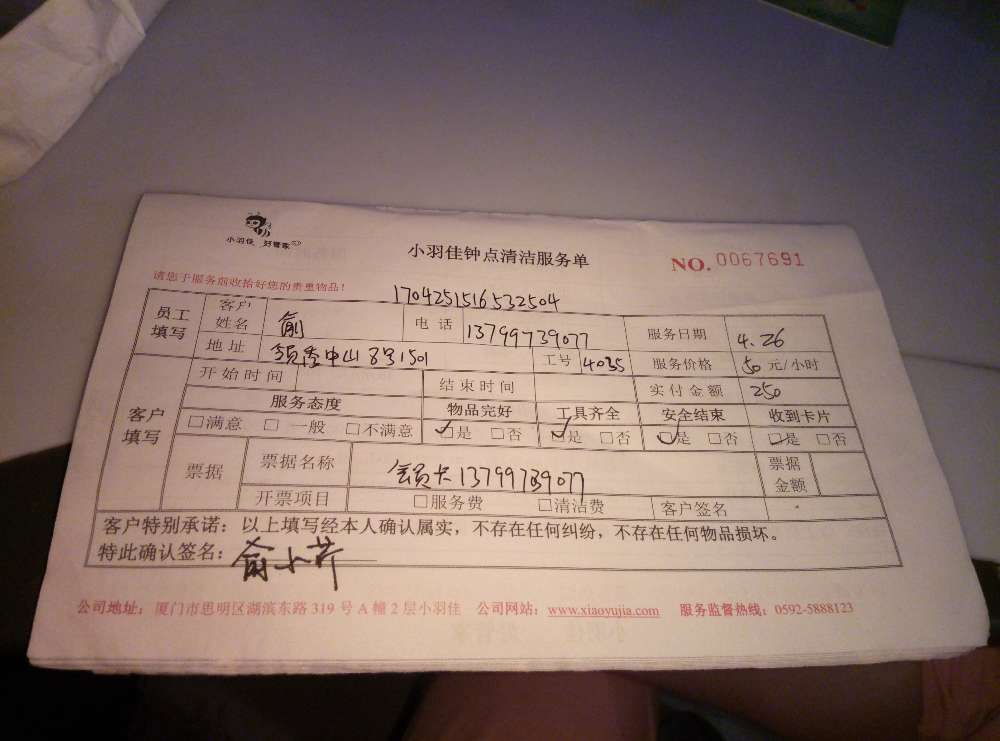 小羽佳 好管家
小羽佳钟点清洁服务单
NO. 0067691
请您于服务前收拾好您的贵重物品!
1704251516532504
员工填写 客户姓名 俞 电话 13799739077 服务日期 4.26
地址 领秀中山 1501 工号 4035 服务价格 50 元/小时
客户填写 开始时间 结束时间 实付金额 250
服务态度 物品完好 工具齐全 安全结束 收到卡片
□满意 □一般 □不满意 ☑是 □否 ☑是 □否 ☑是 □否 ☑是 □否
票据 票据名称 会员卡13799739077 票据金额
开票项目 □服务费 □清洁费 客户签名
客户特别承诺:以上填写经本人确认属实,不存在任何纠纷,不存在任何物品损坏。
特此确认签名:俞小芹
公司地址:厦门市思明区湖滨东路319号A幢2层小羽佳 公司网站:www.xiaoyujia.com 服务监督热线:0592-5888123